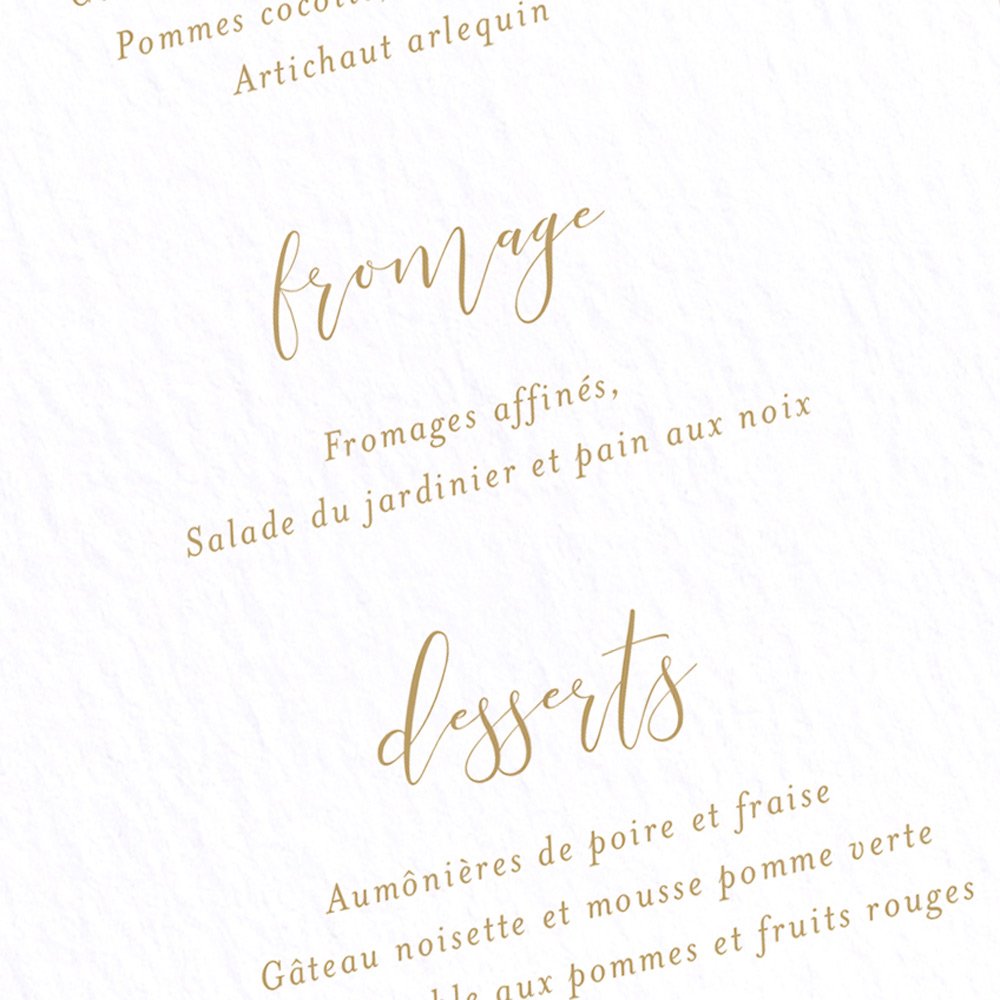 Pommes
Artichaut arlequin
fromage
Fromages affinés,
Salade du jardinier et pain aux noix
desserts
Aumônières de poire et fraise
Gâteau noisette et mousse pomme verte
aux pommes et fruits rouges